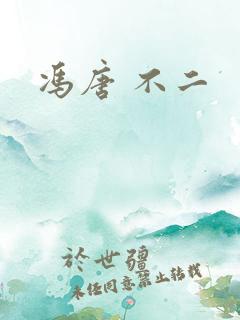 冯唐 不二
於世疆
未经同意禁止转载